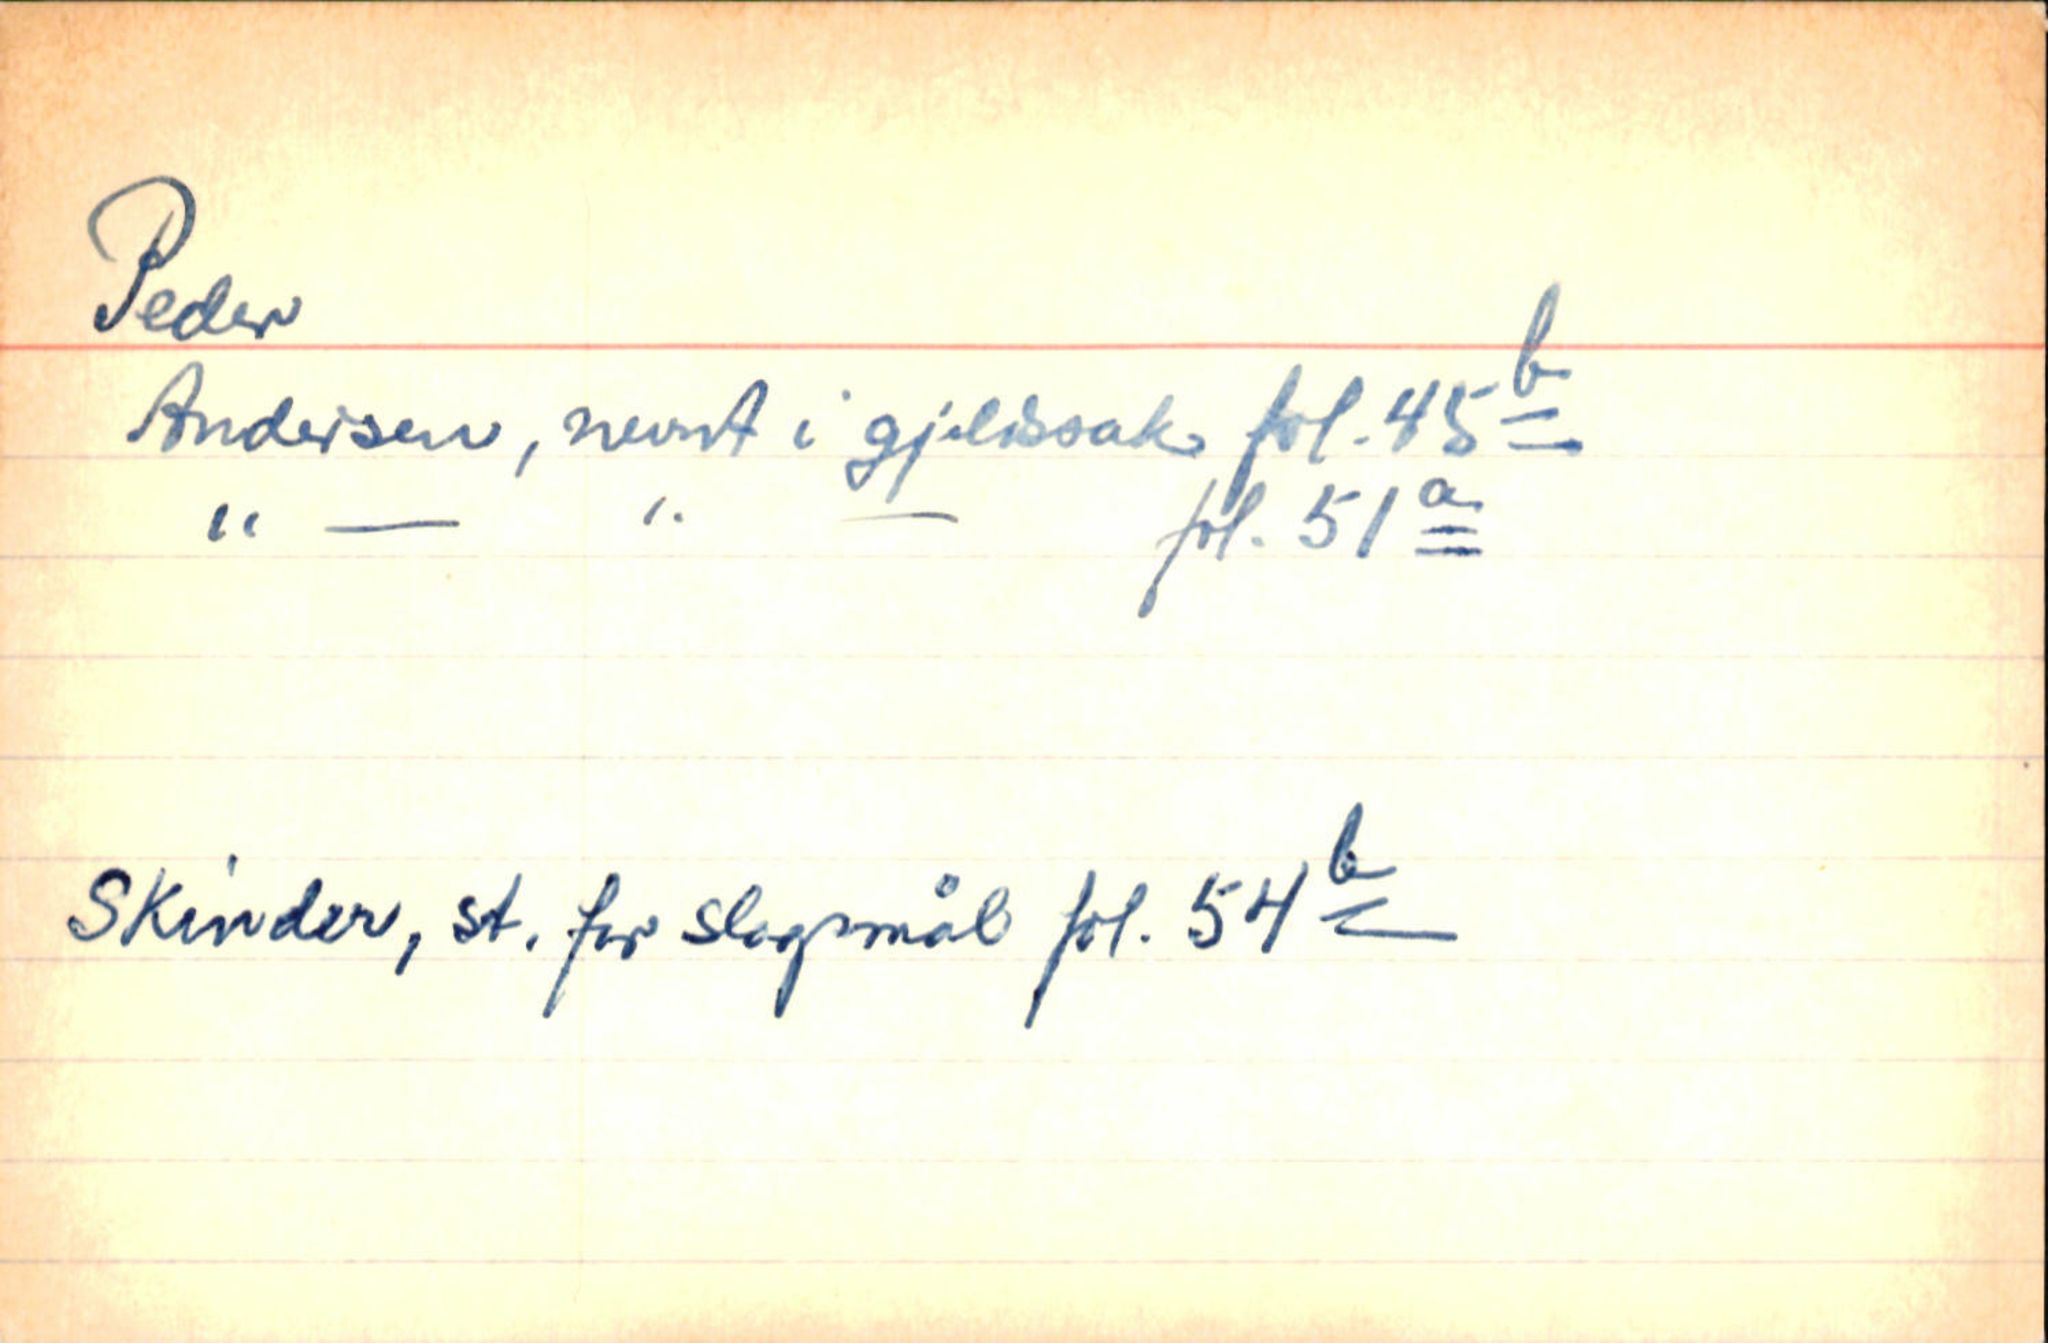 Peder
Andersen, nevnt i gjeldssak fol. 45 b
" — " — fol. 51 a
Skinder, st. for slagsmål fol. 54 b